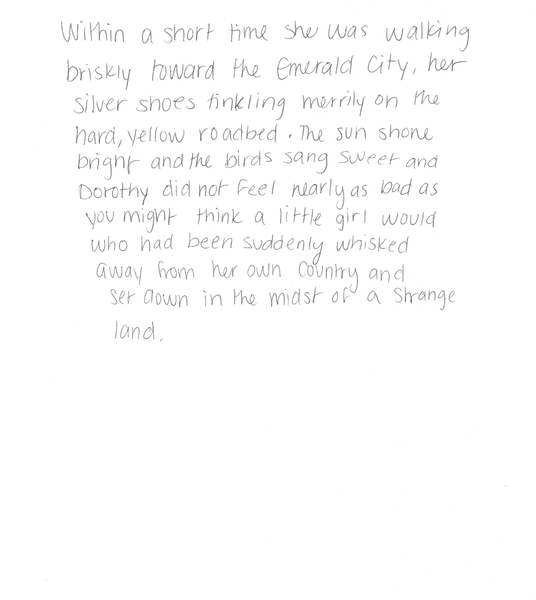 Within a short time she was walking
briskly toward the Emerald City, her
silver shoes tinkling merrily on the
hard, yellow roadbed. The sun shone
bright and the birds sang sweet and
Dorothy did not feel nearly as bad as
you might think a little girl would
who had been suddenly whisked
away from her own country and
set down in the midst of a strange
land.